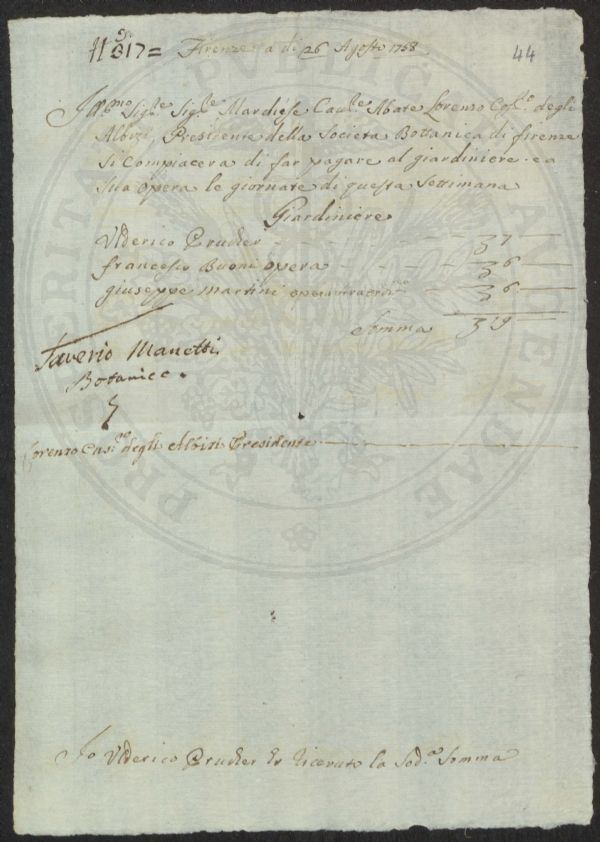 N° 317 = Firenze a di 26 Agosto 1758
44
Ill.mo Sig.re Sig.re Marchese Cav.re Abate Lorenzo Cos.o degli
Albizi, Presidente della Societa Bottanica di firenze
si Compiacera di far pagare al giardiniere e a
sua opera le giornate di questa Settimana
Giardiniere
Uderico Prucker 7
francesco Buoni opera 6
giuseppe martini opera straord.rio 6
Somma 19
Saverio Manetti
Botanico
Lorenzo degli Albizi Presidente
Io Uderico Prucker ho riceuto la Sod.a Somma
PROSPERITATI PUBLICAE AUGENDAE